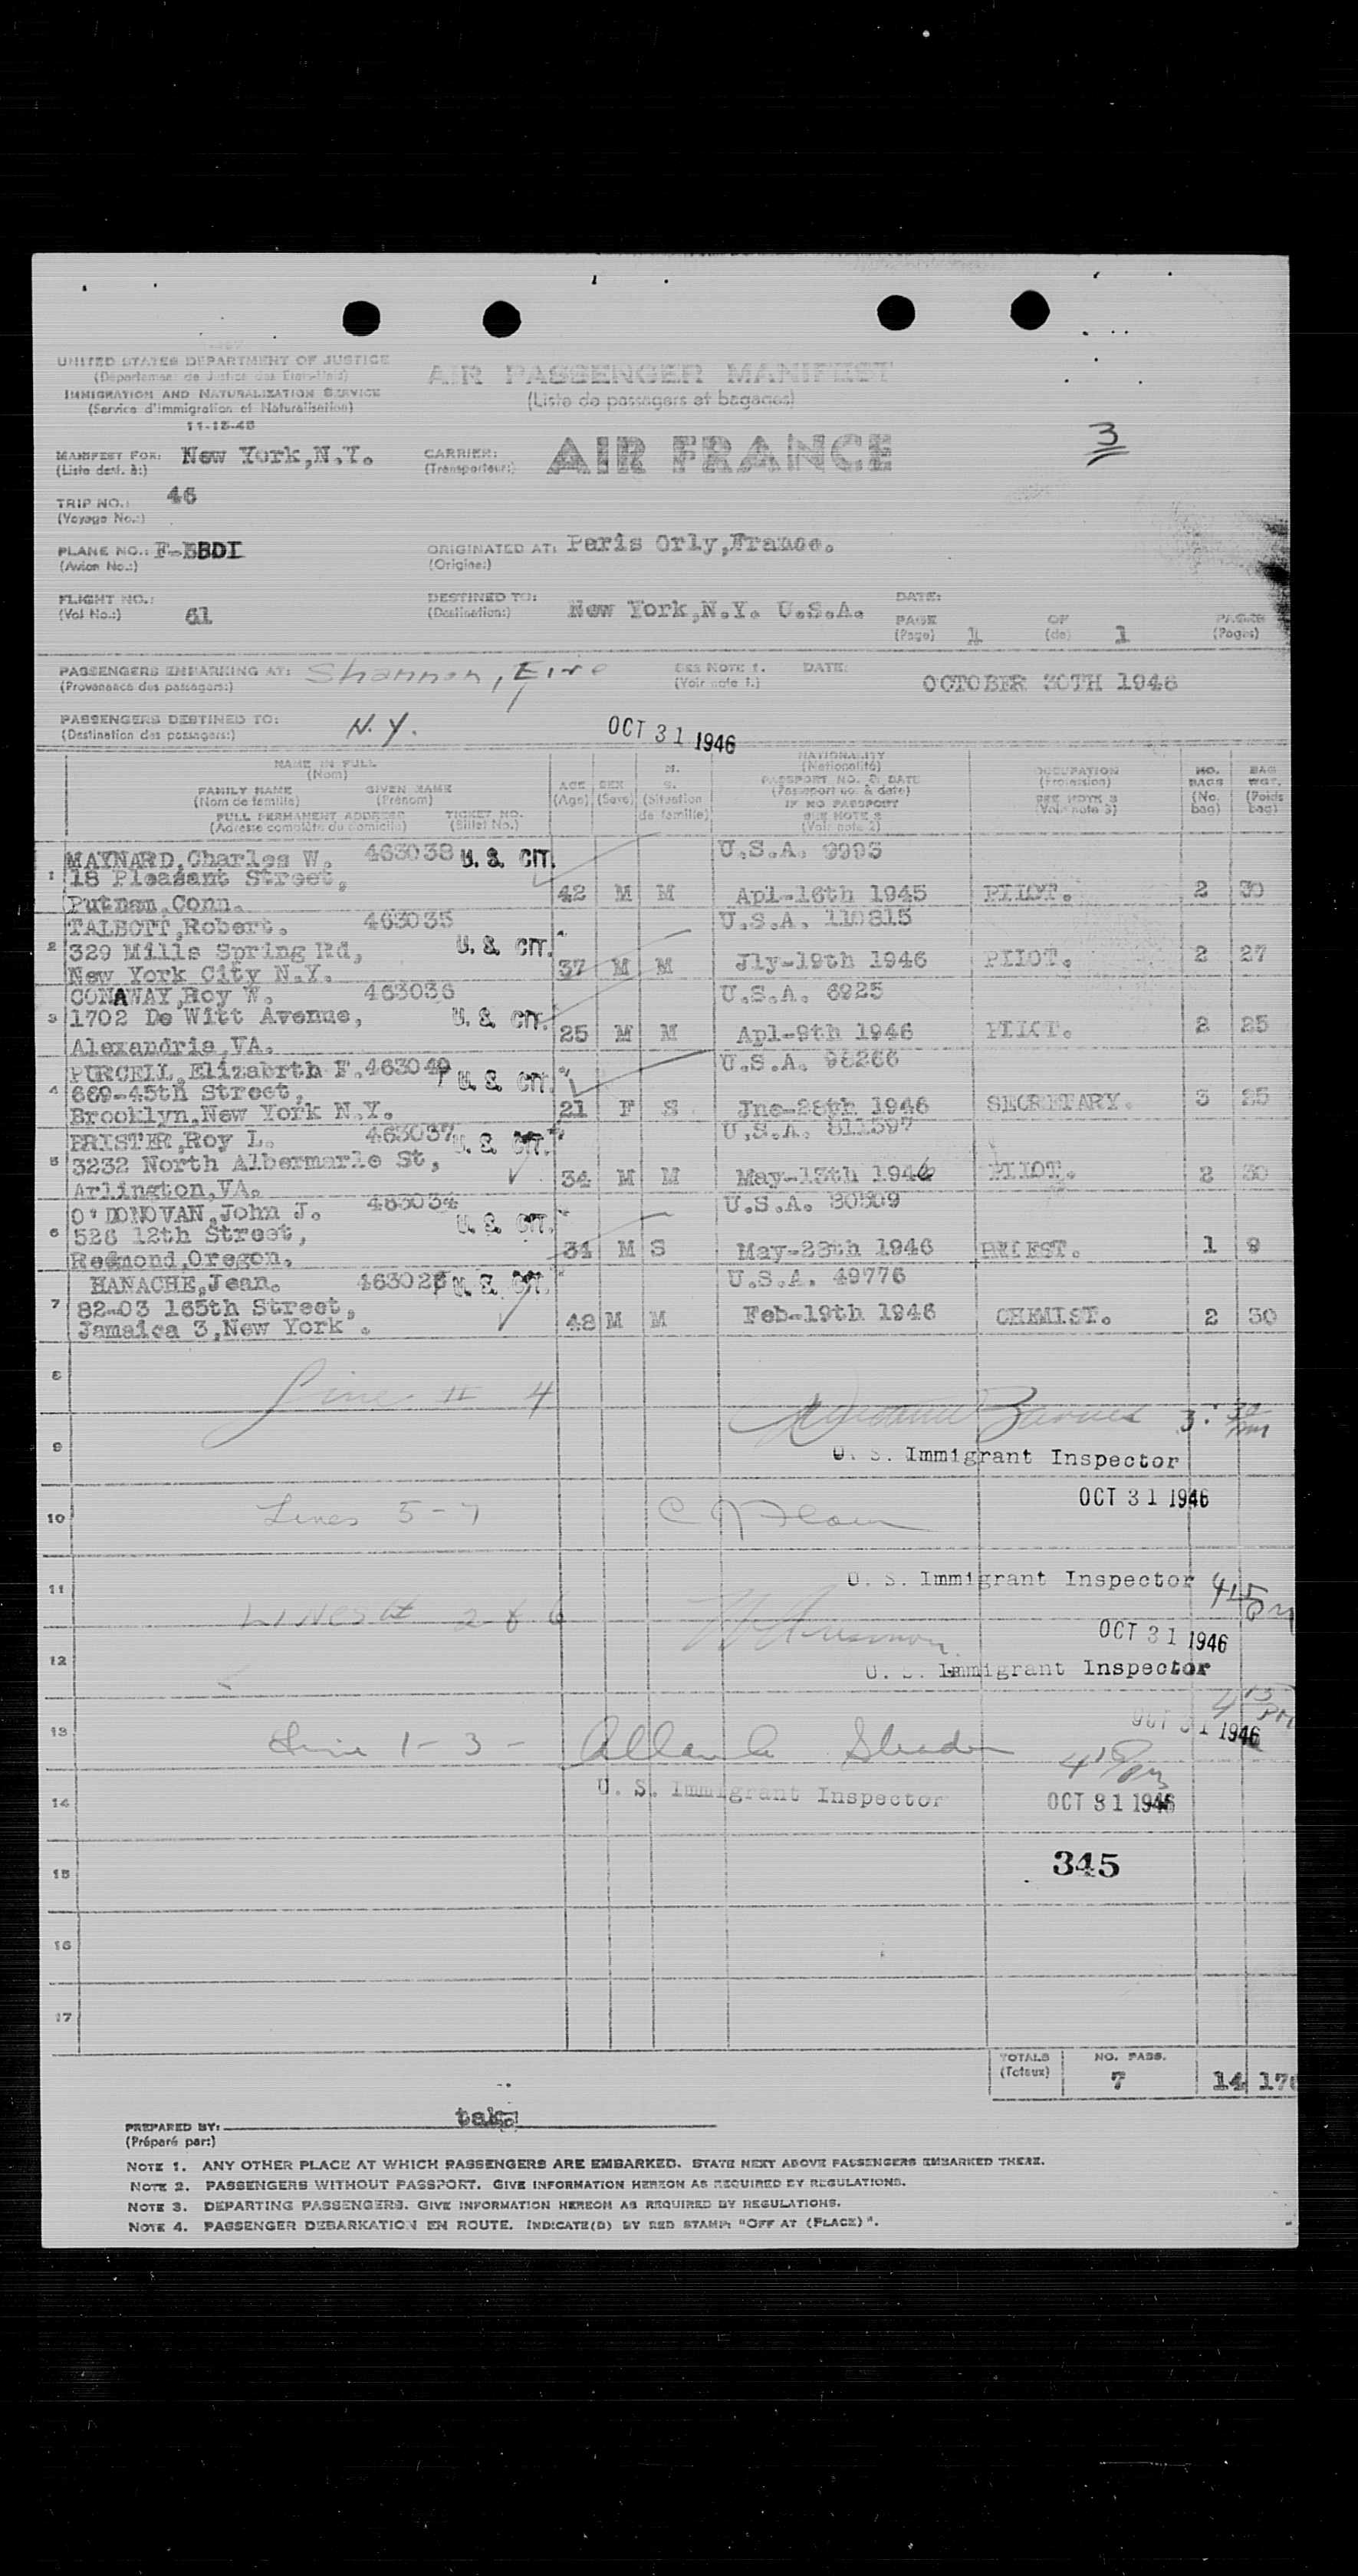 UNITED STATES DEPARTMENT OF JUSTICE
(Département de Justice des Etats-Unis)
IMMIGRATION AND NATURALIZATION SERVICE
(Service d'Immigration et Naturalisation)
11-15-45
AIR PASSENGER MANIFEST
(Liste de passagers et bagages)
3
MANIFEST FOR: New York,N.Y.
(Liste dest. à:)
CARRIER: AIR FRANCE
(Transporteur:)
TRIP NO.: 46
(Voyage No.:)
PLANE NO.: F-BBDI
(Avion No.:)
ORIGINATED AT: Paris Orly,France.
(Origine:)
FLIGHT NO.: 61
(Vol No.:)
DESTINED TO: New York,N.Y. U.S.A.
(Destination:)
DATE:
PAGE 1 OF 1 PAGES
(Page) (de) (Pages)
PASSENGERS EMBARKING AT: Shannon, Eire
(Provenance des passagers:)
SEE NOTE 1. DATE: OCTOBER 30TH 1946
(Voir note 1.)
PASSENGERS DESTINED TO: N.Y.
(Destination des passagers:)
OCT 31 1946
NAME IN FULL
(Nom)
FAMILY NAME GIVEN NAME
(Nom de famille) (Prénom)
FULL PERMANENT ADDRESS TICKET NO.
(Adresse complète du domicile) (Billet No.)
AGE
(Age)
SEX
(Sexe)
M.
S.
(Situation
de famille)
NATIONALITY
(Nationalité)
PASSPORT NO. & DATE
(Passeport no. & date)
IF NO PASSPORT
SEE NOTE 2
(Voir note 2)
OCCUPATION
(Profession)
SEE NOTE 3
(Voir note 3)
NO.
BAGS
(No.
bag)
BAG
WGT.
(Poids
bag)
MAYNARD,Charles W. 463038 U. S. CIT. U.S.A. 9993
1 18 Pleasant Street,
Putnam.Conn. 42 M M Apl-16th 1945 PILOT. 2 30
TALBOTT,Robert. 463035 U.S.A. 110815
2 329 Mills Spring Rd, U. S. CIT.
New York City N.Y. 37 M M Jly-19th 1946 PILOT. 2 27
CONAWAY,Roy W. 463036 U.S.A. 6925
3 1702 De Witt Avenue, U. S. CIT.
Alexandria,VA. 25 M M Apl-9th 1946 PILOT. 2 25
PURCELL,Elizabrth F.463049 U. S. CIT. U.S.A. 96266
4 669-45th Street,
Brooklyn,New York N.Y. 21 F S Jne-28th 1946 SECRETARY. 3 25
BRISTER,Roy L. 463037 U. S. CIT. U.S.A. 811597
5 3232 North Albermarle St,
Arlington,VA. 34 M M May-13th 1946 PILOT. 2 30
O'DONOVAN,John J. 463034 U. S. CIT. U.S.A. 80509
6 526 12th Street,
Redmond,Oregon. 34 M S May-28th 1946 PRIEST. 1 9
HANACHE,Jean. 463026 U. S. CIT. U.S.A. 49776
7 82-03 165th Street,
Jamaica 3,New York . 48 M M Feb-19th 1946 CHEMIST. 2 30
8
Line # 4
3:30 pm
9
U. S. Immigrant Inspector
OCT 31 1946
10 Lines 5-7
11
U. S. Immigrant Inspector 4:15 pm
Lines # 2 & 6
OCT 31 1946
12
U. S. Immigrant Inspector
4 15 PM
13
OCT 31 1946
Line 1-3-
4 15 pm
14 U. S. Immigrant Inspector OCT 31 1946
345
15
16
17
TOTALS NO. PASS.
(Totaux) 7 14 176
PREPARED BY:
(Préparé par:)
NOTE 1. ANY OTHER PLACE AT WHICH PASSENGERS ARE EMBARKED. STATE NEXT ABOVE PASSENGERS EMBARKED THERE.
NOTE 2. PASSENGERS WITHOUT PASSPORT. GIVE INFORMATION HEREON AS REQUIRED BY REGULATIONS.
NOTE 3. DEPARTING PASSENGERS. GIVE INFORMATION HEREON AS REQUIRED BY REGULATIONS.
NOTE 4. PASSENGER DEBARKATION EN ROUTE. INDICATE(D) BY RED STAMP: "OFF AT (PLACE)".